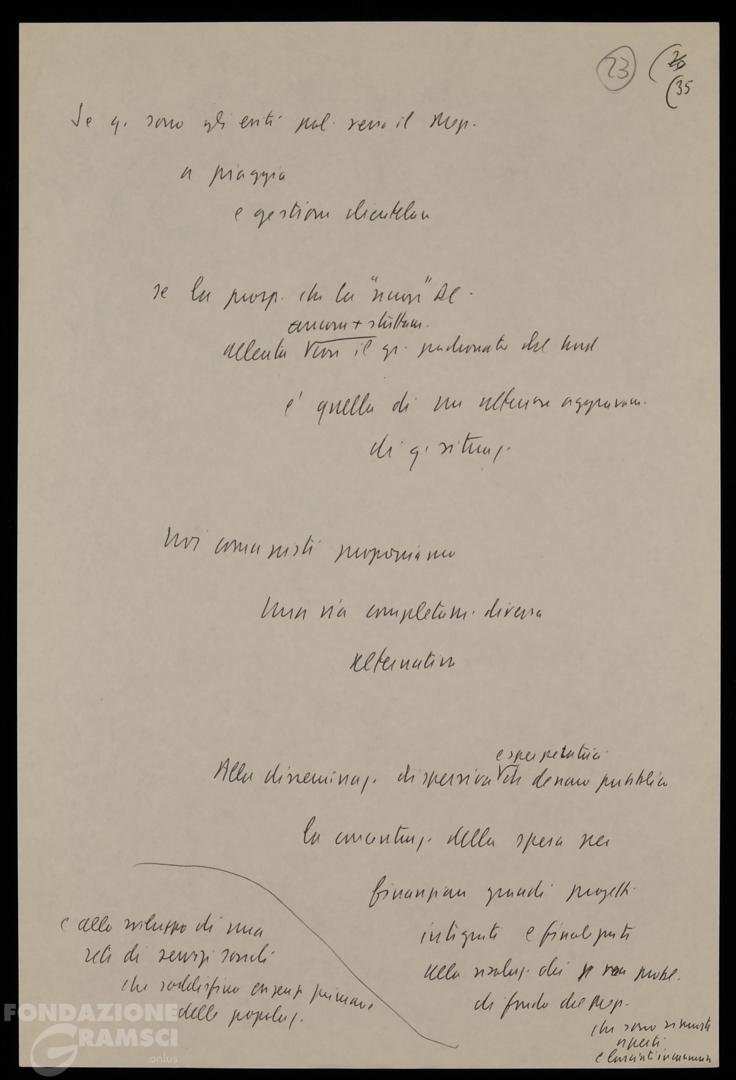 23 (26
(35
Se q. sono gli orient. pol. verso il Mezz.
a pioggia
e gestione clientelare
se la prosp. che la "nuova" DC
ancora + strettam.
allenta verso il gr. padronato del nord
è quella di un ulteriore aggravam.
di q. situaz.
Noi comunisti proponiamo
una via completam. diversa
alternativa
e sperperatrice
Alla disseminaz. dispersiva di denaro pubblico
la concentraz. della spesa per
finanziare grandi progetti
integrati e finalizzati
alla risoluz. dei probl.
di fondo del Mezz.
che sono rimasti
aperti
e
e allo sviluppo di una
rete di servizi sociali
che soddisfino esigenze primarie
della popolaz.
FONDAZIONE
GRAMSCI
onlus